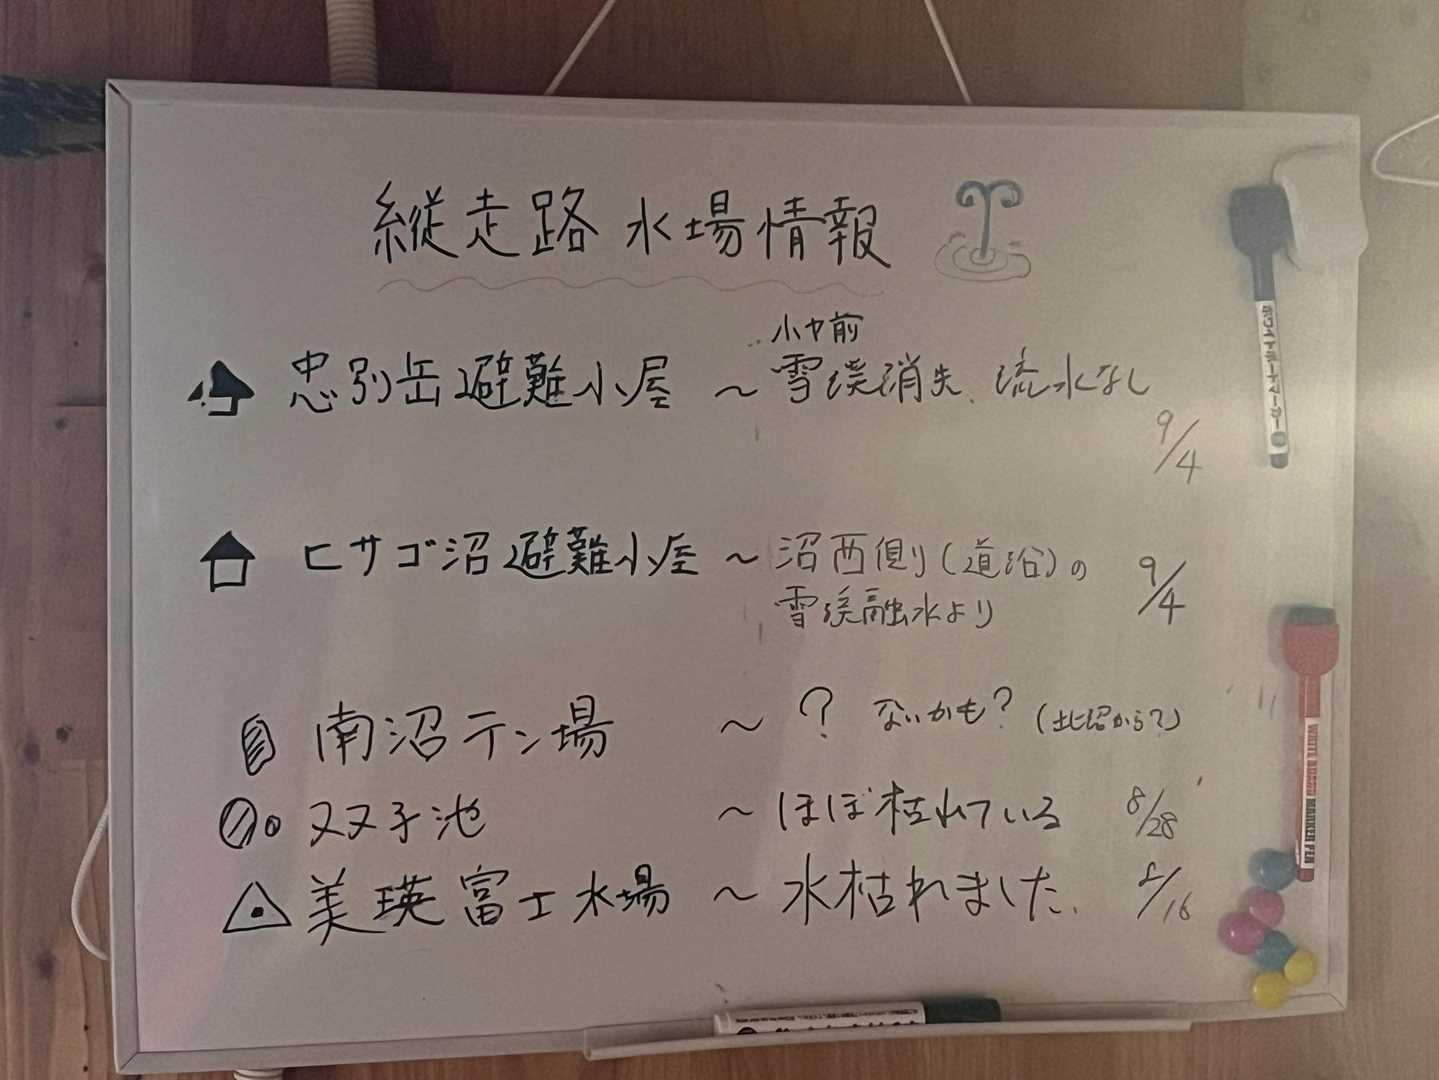 縦走路 水場情報
小ヤ前
忠別岳避難小屋 ～ 雪渓消失、流水なし
9/4
ヒサゴ沼避難小屋 ～ 沼西側(道沿)の 9/4
雪渓融水より
南沼テン場 ～ ? ないかも? (北沼から?)
双子池 ～ ほぼ枯れている 8/28
美瑛富士水場 ～ 水枯れました. 8/16
ホワイトボードマーカー
WHITE BOARD MARKER PEN